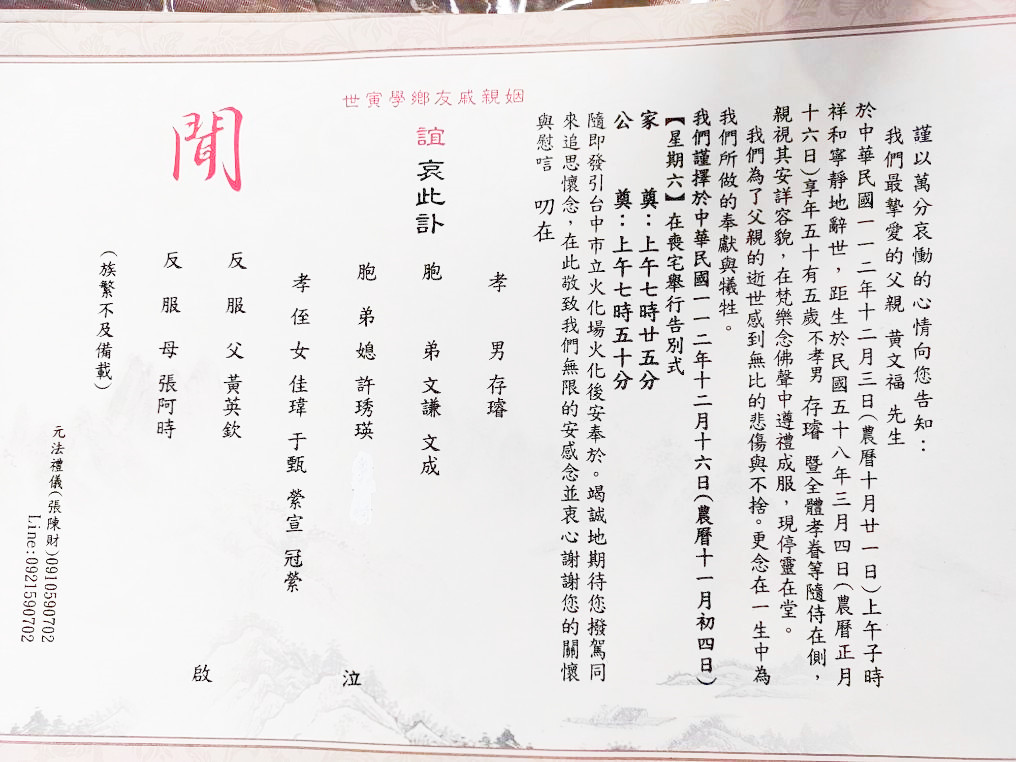 謹以萬分哀慟的心情向您告知：
我們最摯愛的父親 黄文福 先生
於中華民國一一二年十二月三日(農曆十月廿一日)上午子時
祥和寧靜地辭世，距生於民國五十八年三月四日(農曆正月
十六日)享年五十有五歲不孝男 存璿 暨全體孝眷等隨侍在側，
親視其安詳容貌，在梵樂念佛聲中遵禮成服，現停靈在堂。
我們為了父親的逝世感到無比的悲傷與不捨。更念在一生中為
我們所做的奉獻與犧牲。
我們謹擇於中華民國一一二年十二月十六日(農曆十一月初四日)
【星期六】在喪宅舉行告別式
家 奠：上午七時廿五分
公 奠：上午七時五十分
隨即發引台中市立火化場火化後安奉於。竭誠地期待您撥駕同
來追思懷念，在此敬致我們無限的安感念並衷心謝謝您的關懷
與慰唁 叨在
姻親戚友鄉學寅世
誼哀此訃
聞
孝男 存璿
胞弟 文謙 文成
胞弟媳 許琇瑛
孝侄女 佳瑋 于甄 縈宣 冠縈
反服父 黃英欽
反服母 張阿時
泣
啟
(族繁不及備載)
元法禮儀(張陳財)0910590702
Line:0921590702